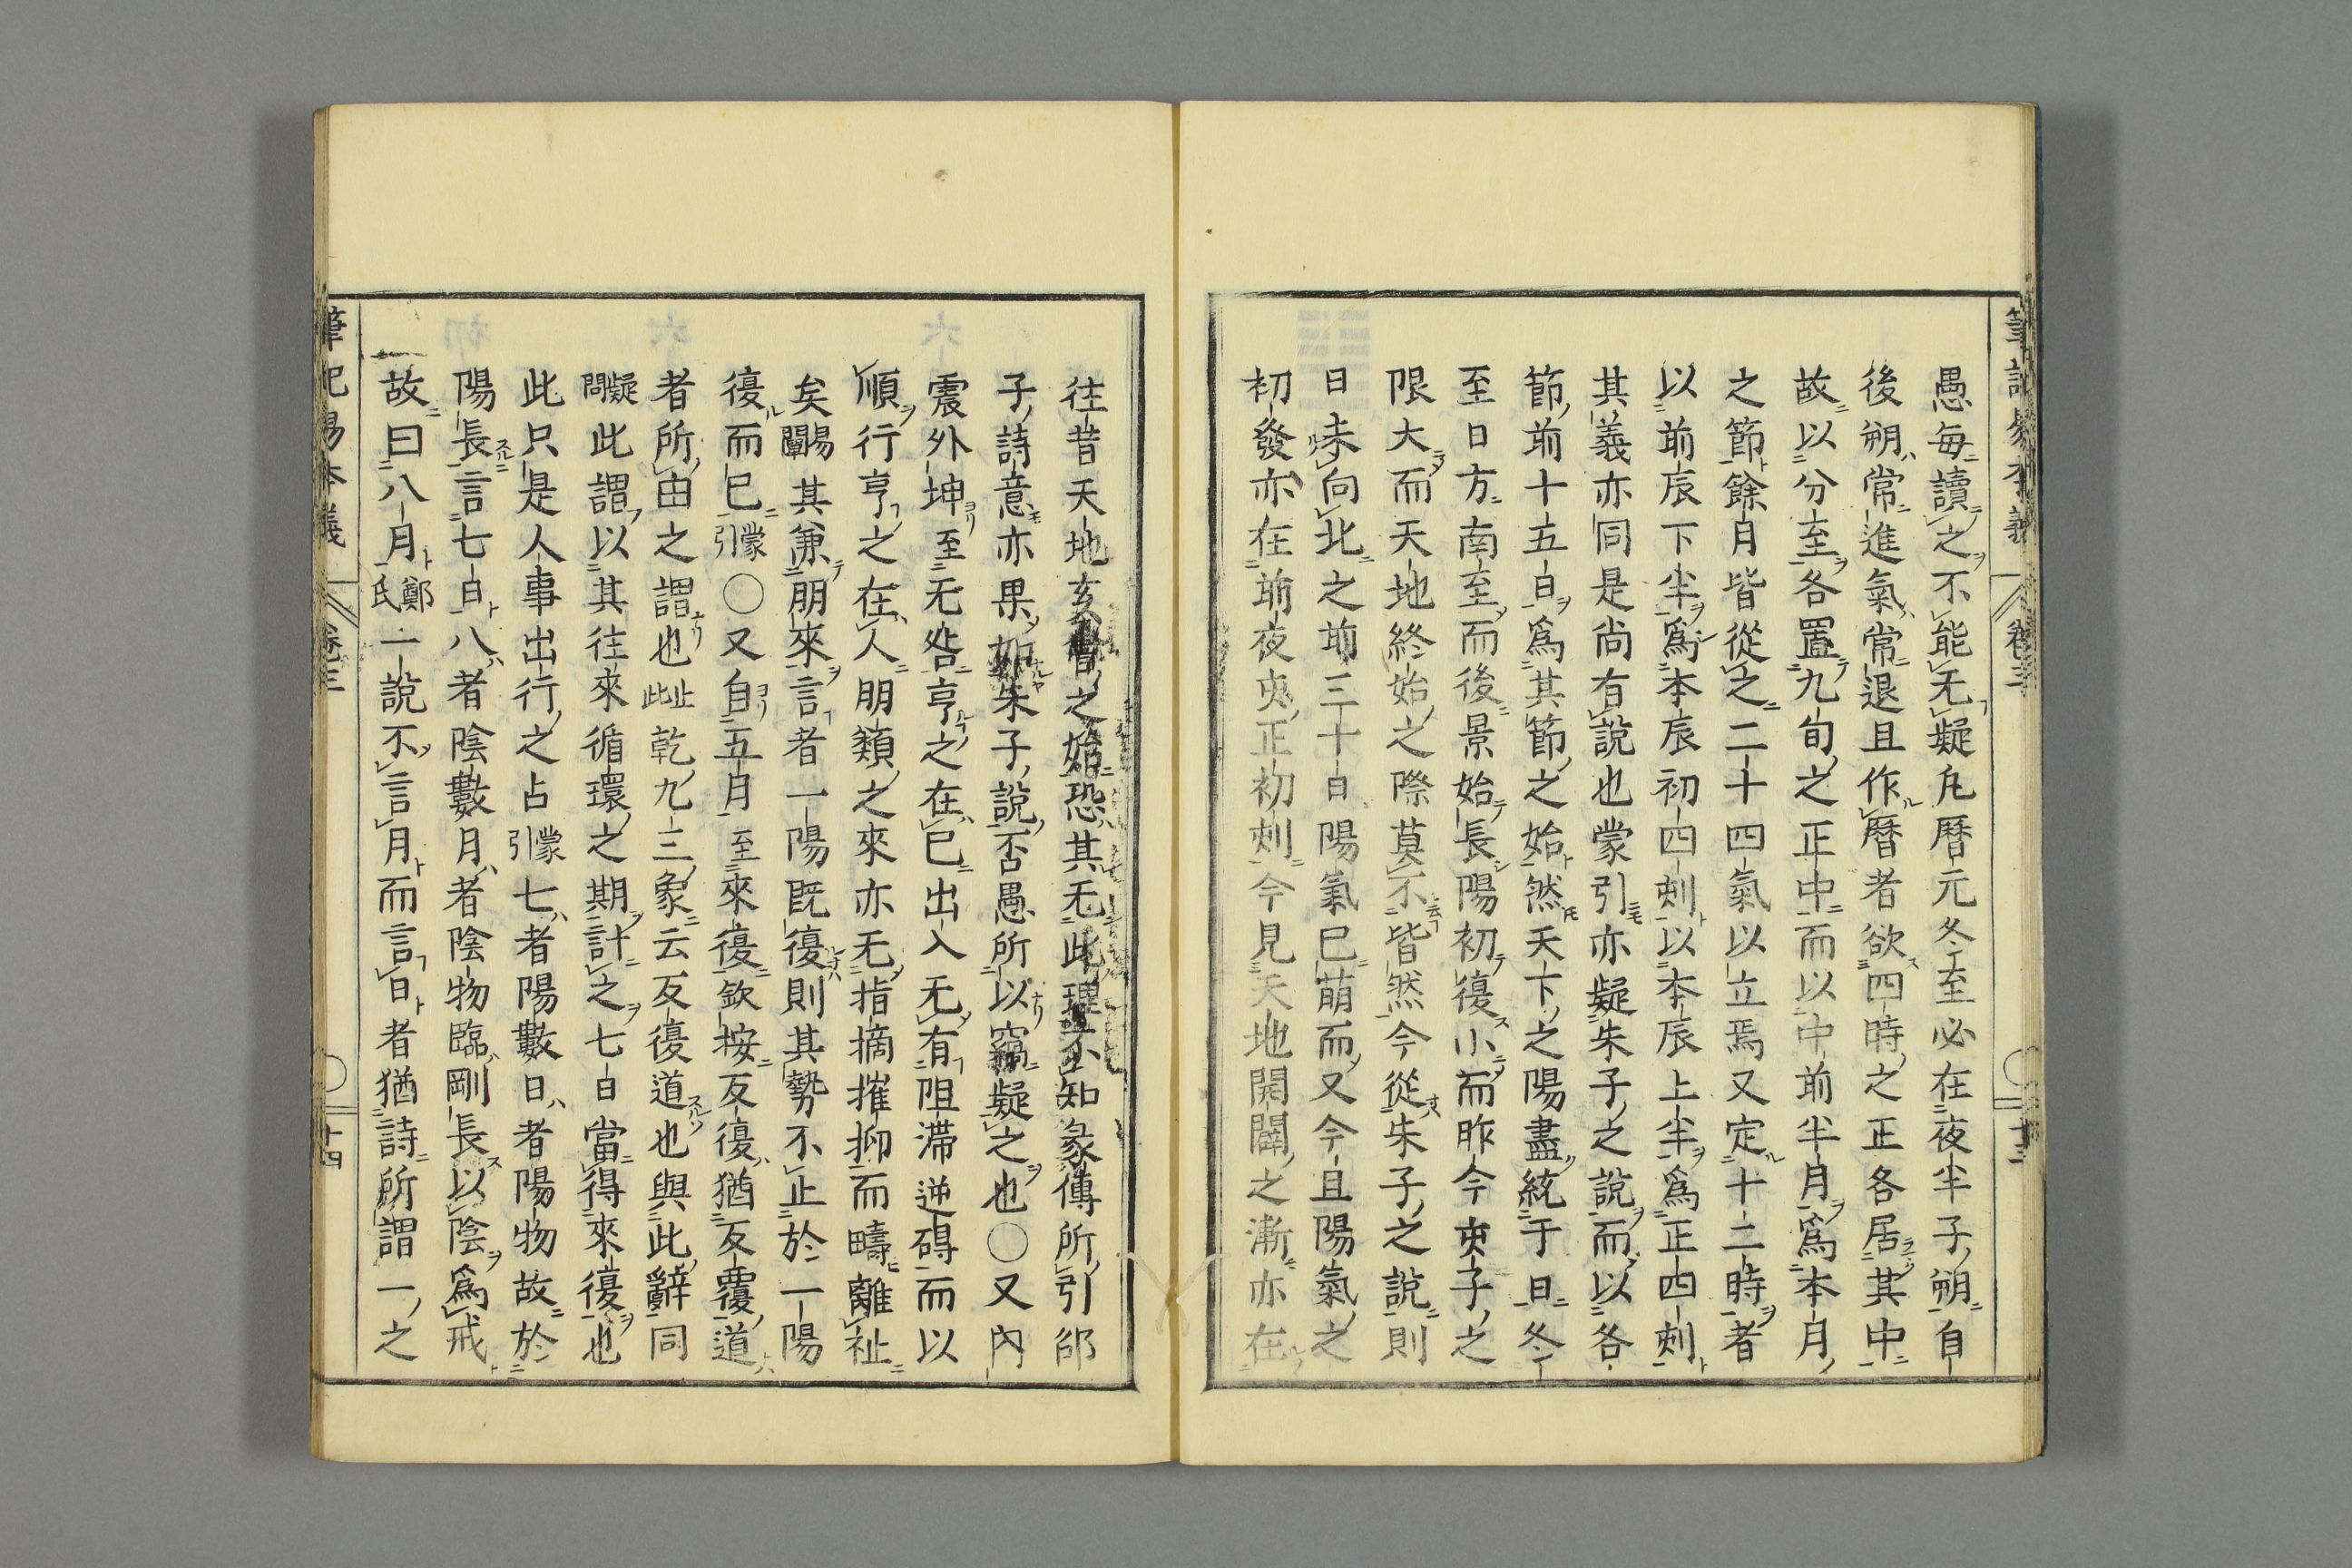 愚每讀之不能无疑凡曆元冬至必在夜半子朔自
後朔常進氣常退且作曆者欲四時之正各居其中
故以分至各置九旬之正中而以中前半月爲本月
之節餘月皆從之二十四氣以立焉又定十二時者
以前辰下半爲本辰初四刻以本辰上半爲正四刻
其義亦同是尚有說也蒙引亦疑朱子之說而以各
節前十五日爲其節之始然天下之陽盡統于日冬
至日方南至而後景始長陽初復小而昨今夾子之
限大而天地終始之際莫不皆然今從朱子之說則
日未向北之前三十日陽氣已萌而又今且陽氣之
初發亦在前夜夾正初刻今見天地闢闔之漸亦在
筆記易本義 卷三 十三
往昔天地亥會之始恐其无此理不知彖傳所引邵
子詩意亦果如朱子說否愚所以竊疑之也○又內
震外坤至无咎亨之在已出入无有阻滯逆碍而以
順行亨之在人朋類之來亦无指摘摧抑而疇離祉
矣易闡其兼朋來言者一陽既復則其勢不止於一陽
復而已蒙引○又自五月至來復欽按反復猶反覆道
者所由之謂也止此乾九三象云反復道也與此辭同
疑問此謂以其往來循環之期計之七日當得來復也
此只是人事出行之占蒙引七者陽數日者陽物故於
陽長言七日八者陰數月者陰物臨剛長以陰爲戒
故曰八月鄭氏一說不言月而言日者猶詩所謂一之
筆記易本義 卷三 十四